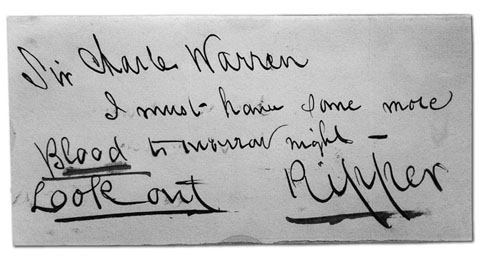 Sir Charles Warren
I must have some more
Blood tomorrow night –
Look out Ripper